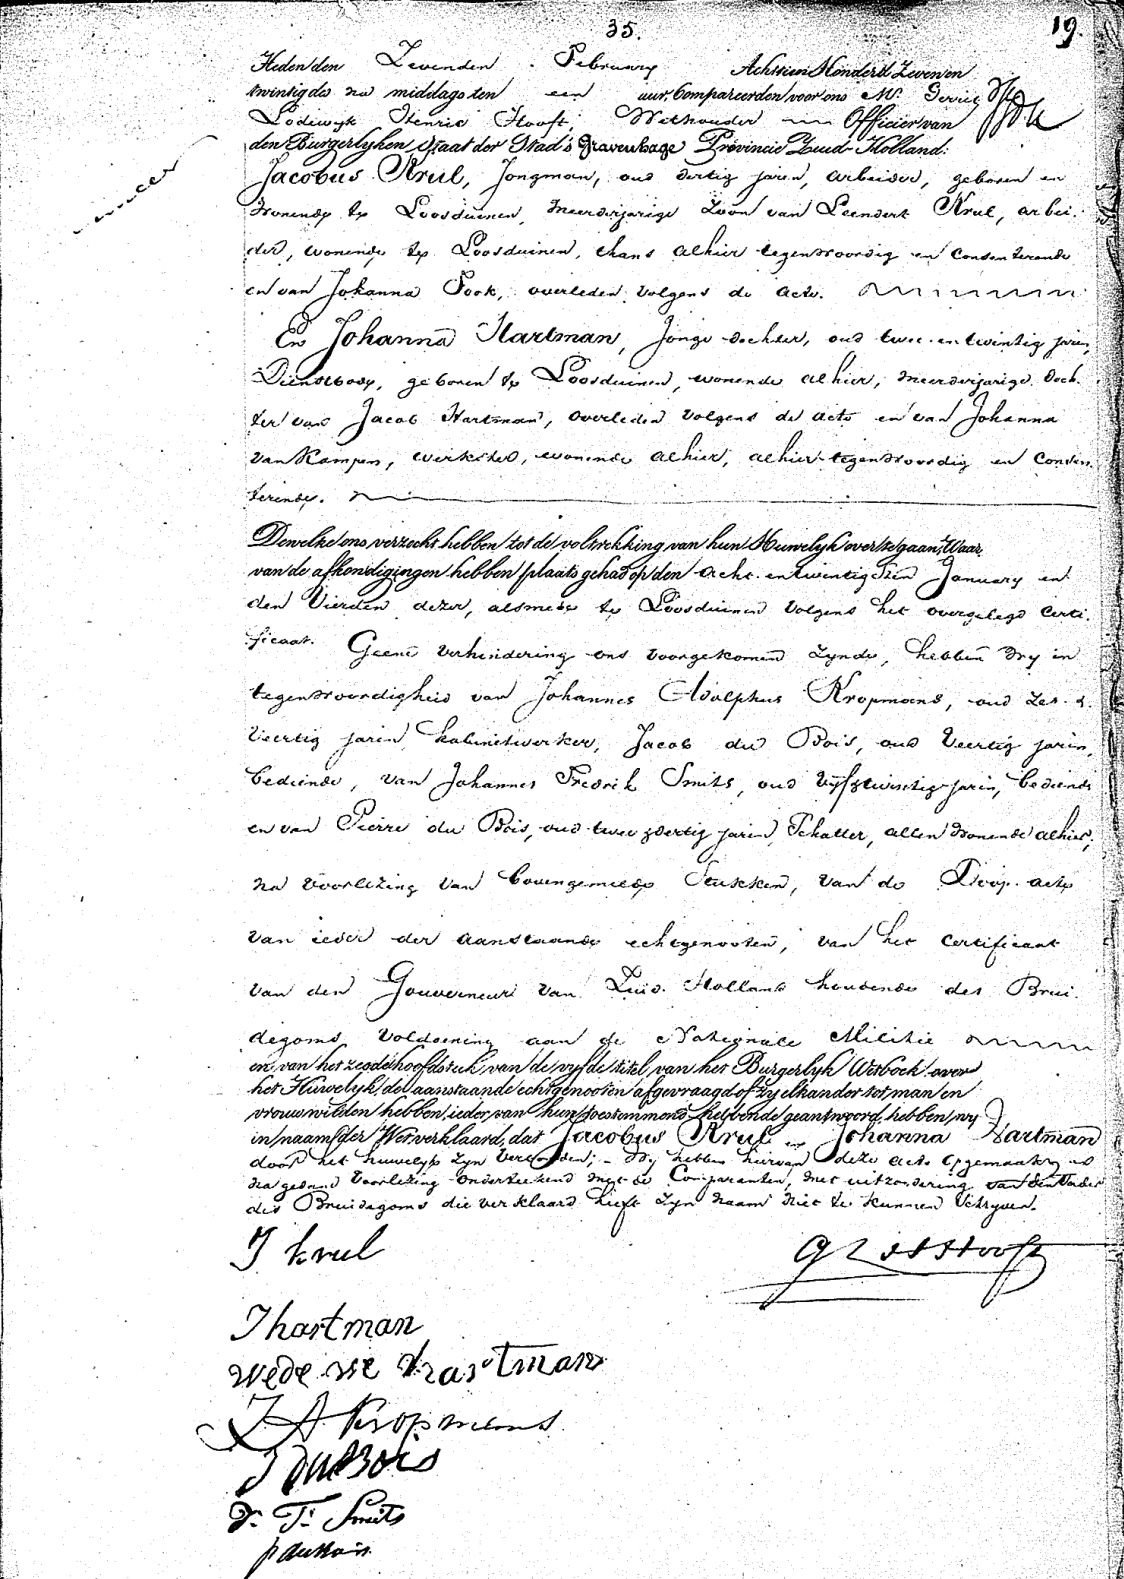 35.
19.
Heden den Zevenden February Achttien Honderd Zeven en
twintig des na middags ten een uur, Compareerden voor ons Mr. Gerrit
Lodewyk Henric Hooft, Wethouder Officier van
den Burgerlyken Staat der Stad 's Gravenhage Provincie Zuid-Holland:
Jacobus Krul, Jongman, oud dertig jaren, arbeider, geboren en
wonende te Loosduinen, meerderjarige Zoon van Leendert Krul, arbei-
der, wonende te Loosduinen, thans alhier tegenwoordig en Consenterende
en van Johanna Pook, overleden volgens de acte.
En Johanna Hartman, Jonge dochter, oud twee en twintig jaren,
Dienstbode, geboren te Loosduinen, wonende alhier, meerderjarige doch-
ter van Jacob Hartman, overleden volgens de acte en van Johanna
van Kampen, werkster, wonende alhier, alhier tegenwoordig en Consen-
terende.
Dewelke ons verzocht hebben tot de voltrekking van hun Huwelyk over te gaan, Waar
van de afkondigingen hebben plaats gehad op den acht en twintigsten January en
den Vierden dezer, alsmede te Loosduinen volgens het overgelegd Certi-
ficaat. Geene verhindering ons voorgekomen zynde, hebben Wy in
tegenwoordigheid van Johannes Adolphus Kropmans, oud Zes &
Veertig jaren, kabinetwerker, Jacob du Bois, oud Veertig jaren,
bediende, van Johannes Fredrik Smits, oud Vyf & twintig jaren, bediende
en van Pierre du Bois, oud twee & dertig jaren, Schatter, allen wonende alhier,
na voorlezing van bovengemelde Stukken, van de Doop-acte
van ieder der aanstaande echtgenooten, van het certificaat
van den Gouverneur van Zuid-Holland houdende des Brui-
degoms voldoening aan de Nationale Militie
en van het zesde hoofdstuk van de vyfde titel van het Burgerlyk Wetboek over
het Huwelyk, de aanstaande echtgenooten afgevraagd of zy elkander tot man en
vrouw wilden hebben, ieder van hun toestemmend hebbende geantwoord, hebben wy
in naam der Wet verklaard, dat Jacobus Krul en Johanna Hartman
door het huwelyk zyn verbonden; Wy hebben hiervan deze acte opgemaakt en
na gedane Voorlezing onderteekend met de Comparanten, met uitzondering van den Vader
des Bruidegoms die verklaard heeft zyn naam niet te kunnen schryven.
J krul
G L H Hooft
J hartman
wede we hartman
J A Kropmans
J duBois
J. F. Smits
p duBois